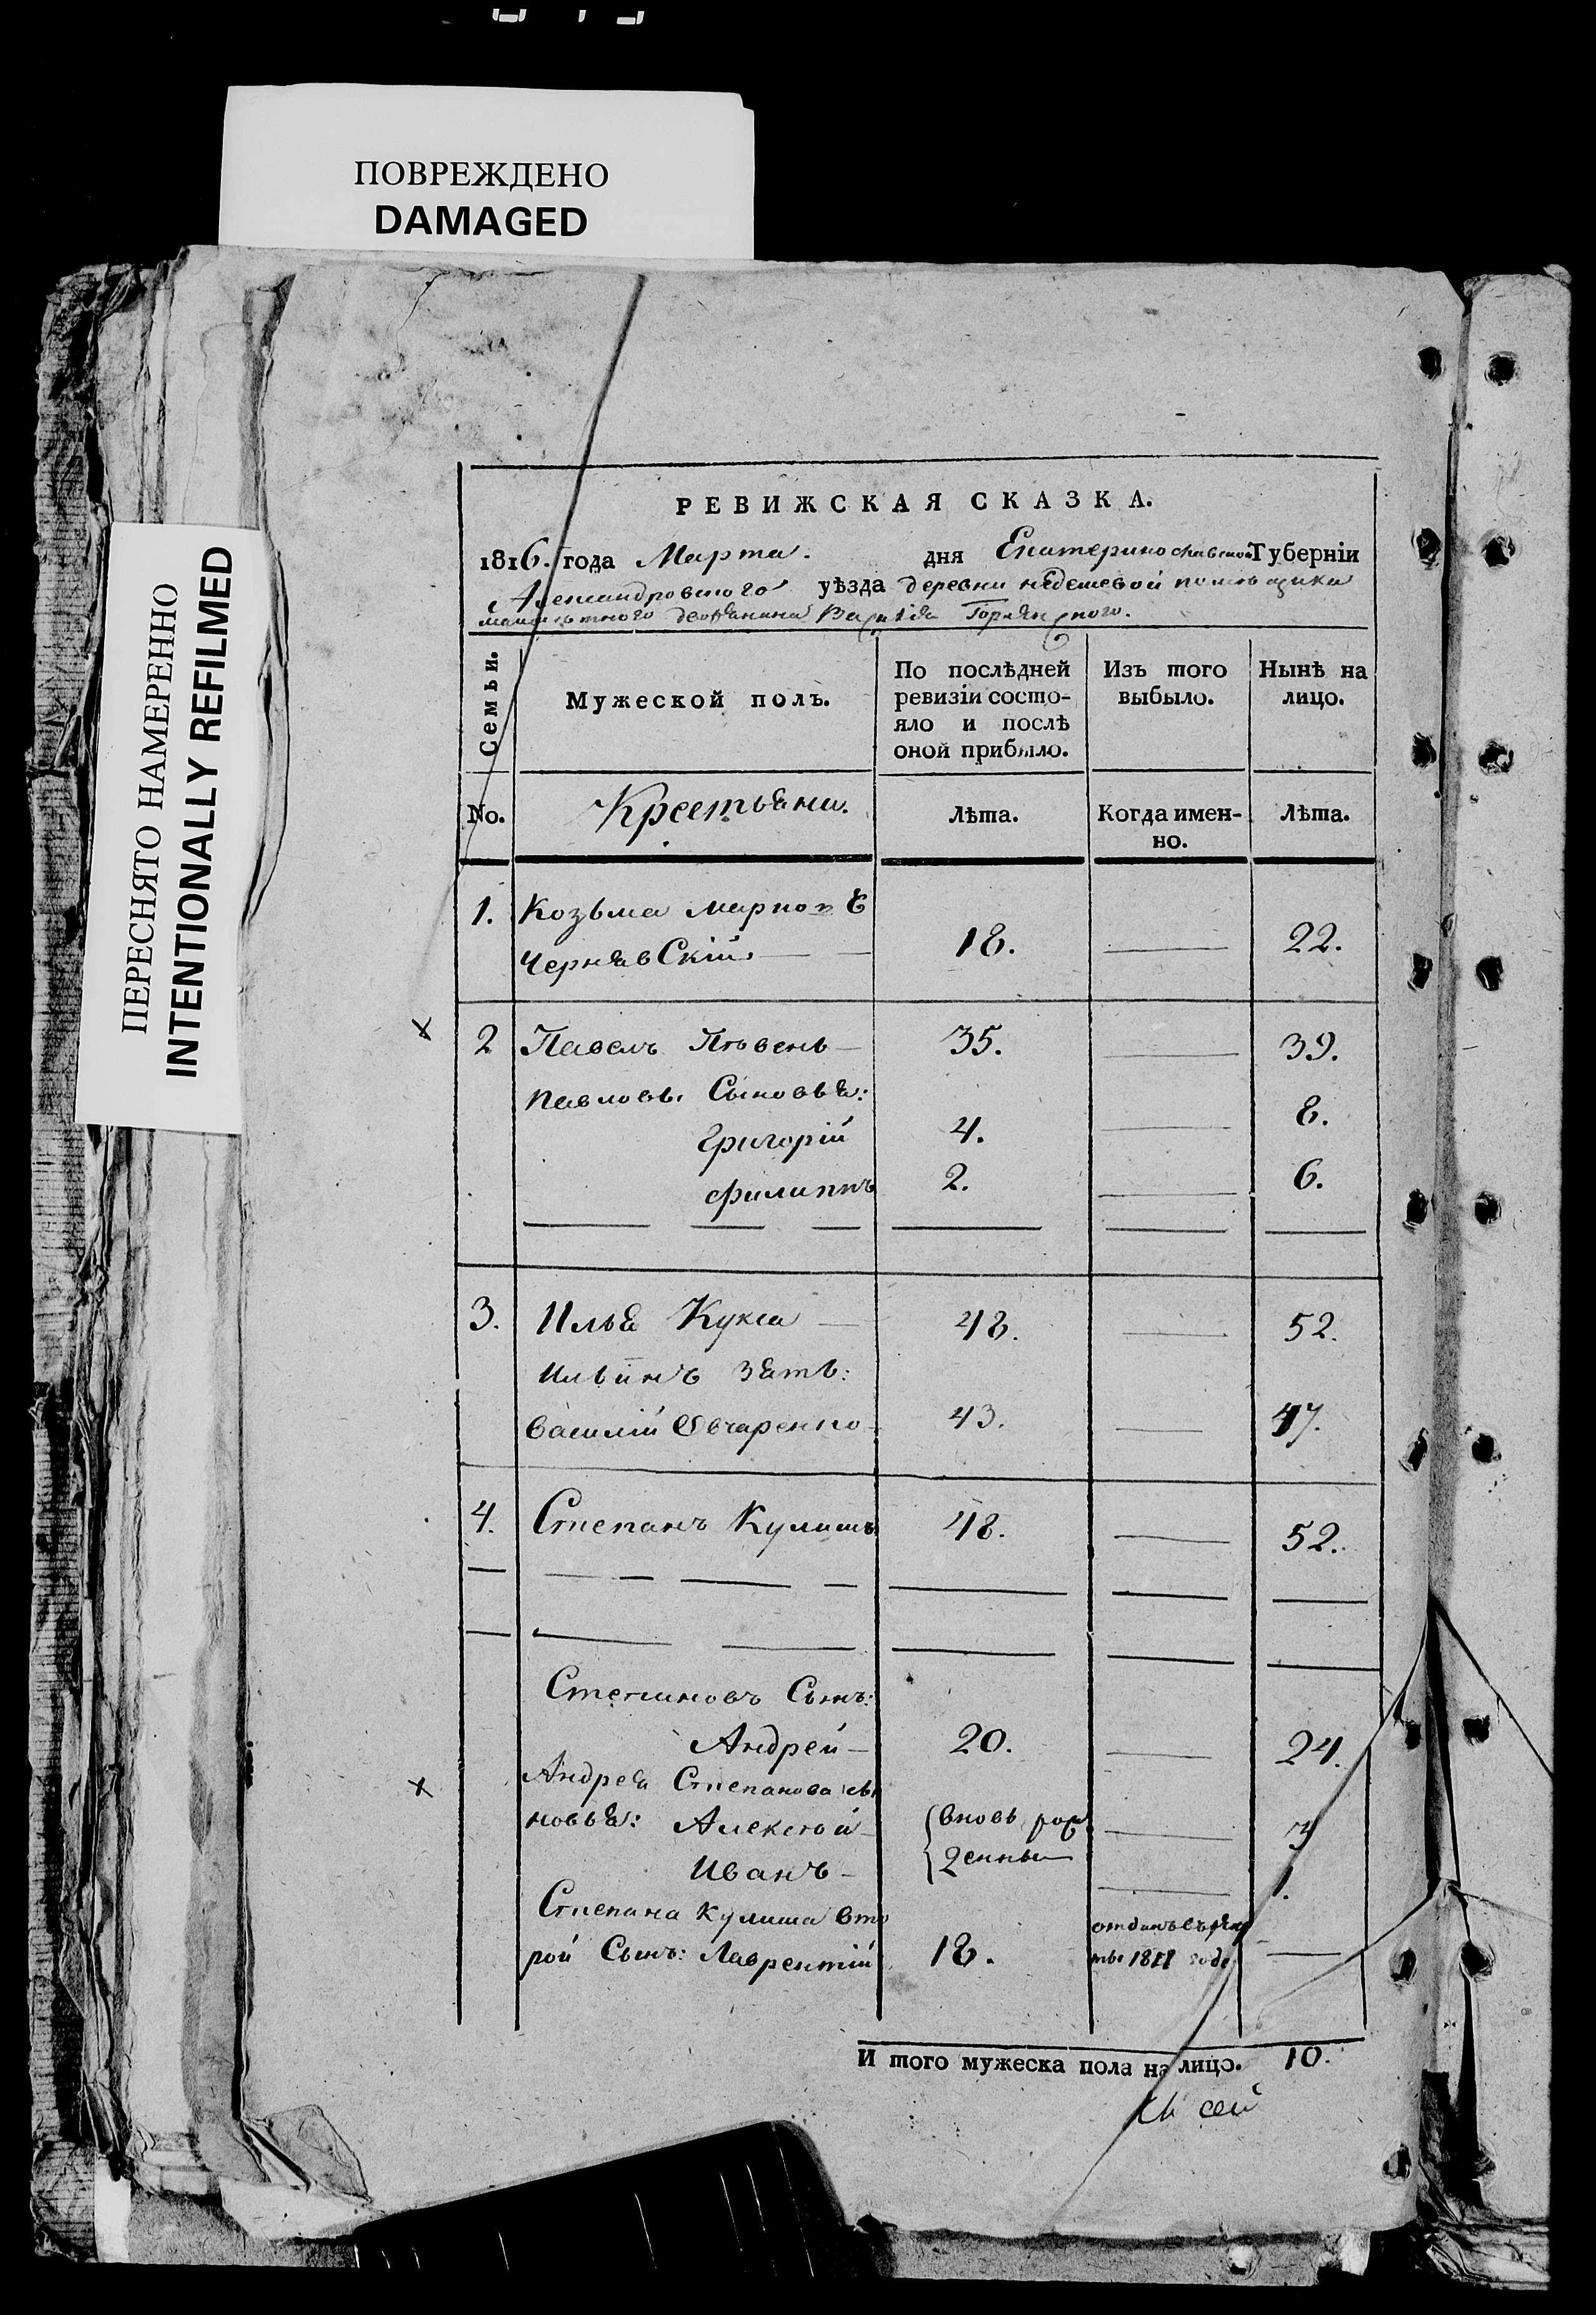 ПОВРЕЖДЕНО
DAMAGED
ПЕРЕСНЯТО НАМЕРЕННО
INTENTIONALLY REFILMED
РЕВИЖСКАЯ СКАЗКА.
1816. года Марта. дня Екатеринославской Губерніи
Александровского уѣзда деревни недешевой помѣщика
дворянина Василія
Семьи.
Мужеской полъ.
По послѣдней ревизіи состо-
яло и послѣ
оной прибыло.
Изъ того
выбыло.
Нынѣ на
лицо.
No. Крестьяни. Лѣта. Когда имен-
но. Лѣта.
1. Козьма Марковъ
Чернявскій. 18. 22.
2 Павелъ Пѣвень 35. 39.
Павловы Сыновья:
Григорій 4. 8.
Филиппъ 2. 6.
3. Илья Кукса 48. 52.
Ильинъ зять:
Василій Овчаренко 43. 47.
4. Степанъ Кулишъ 48. 52.
Степановъ Сынъ:
Андрей 20. 24.
Андрея Степанова сы
новья: Алексѣй вновь рож 3
Иванъ денны 1.
Степана Кулиша вто
рой Сынъ: Лаврентій 18. отданъ въ рекр
ты 1811 годе
И того мужеска пола на лицо. 10.